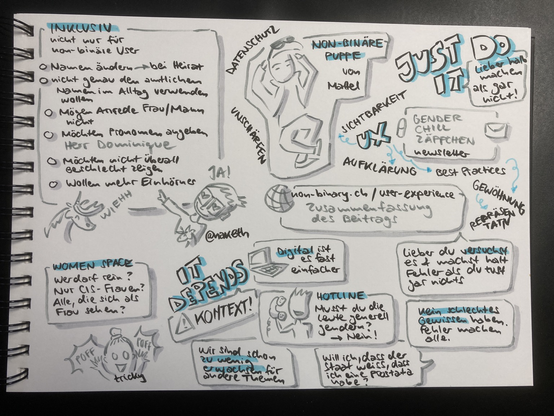 INKLUSIV
nicht nur für
non-binäre User
Namen ändern → bei Heirat
nicht genau den amtlichen
Namen im Alltag verwenden
wollen
Mögen Anrede Frau/Mann
nicht
Möchten Pronomen angeben
Herr Dominique
Möchten nicht überall
Geschlecht zeigen
Wollen mehr Einhörner
WIEHH
JA!
DATENSCHUTZ
UNSCHÄRFEN
NON-BINÄRE
PUPPE
von
Mattel
JUST DO
IT
Lieber halb
machen
als gar
nicht!
SICHTBARKEIT
UX
AUFKLÄRUNG
GENDER
CHILL
ZÄPFCHEN
newsletter
Best Practices
GEWÖHNUNG
non-binary.ch/user-experience
Zusammenfassung
des Beitrags
WOMEN SPACE
Wer darf rein?
Nur Cis-Frauen?
Alle, die sich als
Frau sehen?
PUFF
PUFF
tricky
IT
DEPENDS
KONTEXT!
Digital ist
es fast
einfacher
HOTLINE
Musst du die
Leute generell
gendern?
→ Nein!
Lieber du versuchst
es & machst halt
Fehler als du tust
gar nichts
Kein schlechtes
Gewissen haben.
Fehler machen
alle.
Wir sind schon
zu wenig
erwachsen für
andere Themen
Will ich, dass der
Staat weiss, dass
ich eine Prostata
habe?